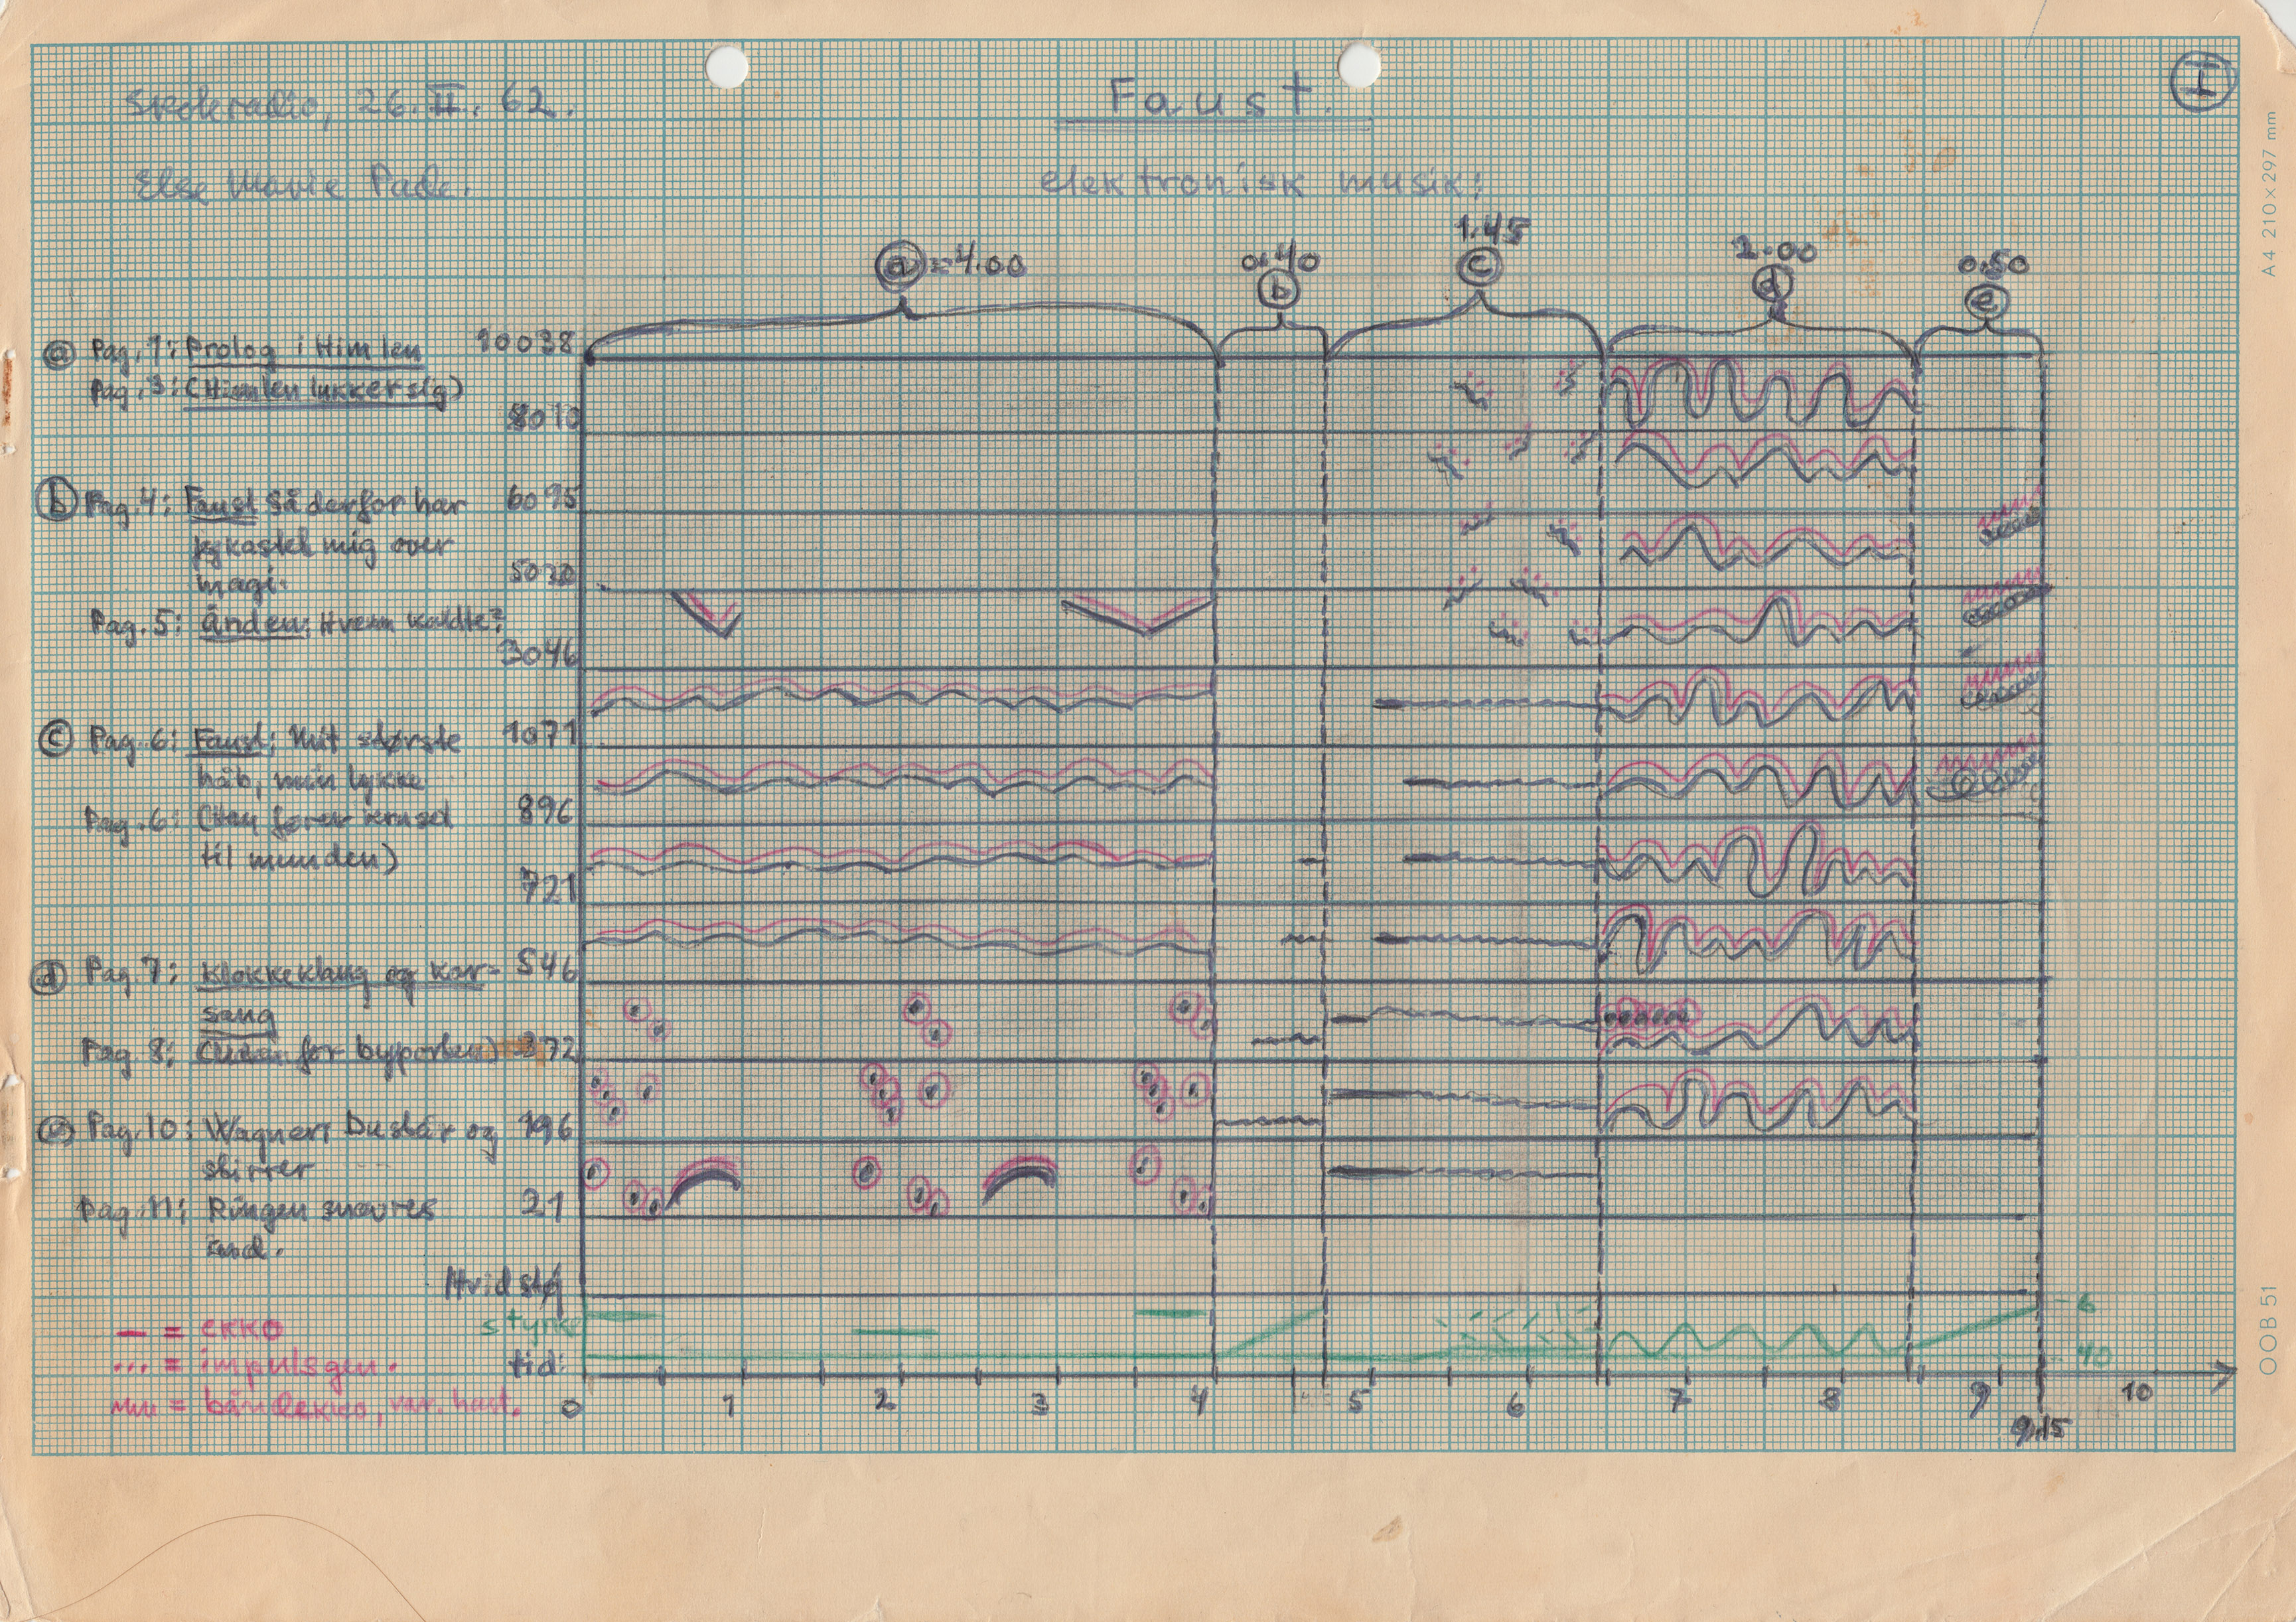 I
Skoleradio, 26. II. 62.
Faust.
Else Marie Pade.
elektronisk musik:
a = 4.00
0.40
b
1.45
c
2.00
d
0.50
e
a Pag. 1: Prolog i Himlen
Pag. 3: (Himlen lukker sig)
b Pag. 4: Faust så derfor har
jeg kastet mig over
magi.
Pag. 5: Ånden: Hvem kaldte?
c Pag. 6: Faust: Mit største
håb, min lykke
Pag. 6: (Han fører krusel
til munden)
d Pag. 7: Klokkeklang og kor-
sang
Pag. 8: (Uden for byporten)
e Pag. 10: Wagner: Du står og
stirrer
Pag. 11: Ringen snævres
ind.
10038
8010
6095
5020
3046
1071
896
721
546
372
196
21
Hvid støj
styrke
tid:
- 6
- 40
0 1 2 3 4 5 6 7 8 9 10
9.15
— = ekko
... = impulsgen.
= båndekko, var. hast.
A4 210×297 mm
OOB 51